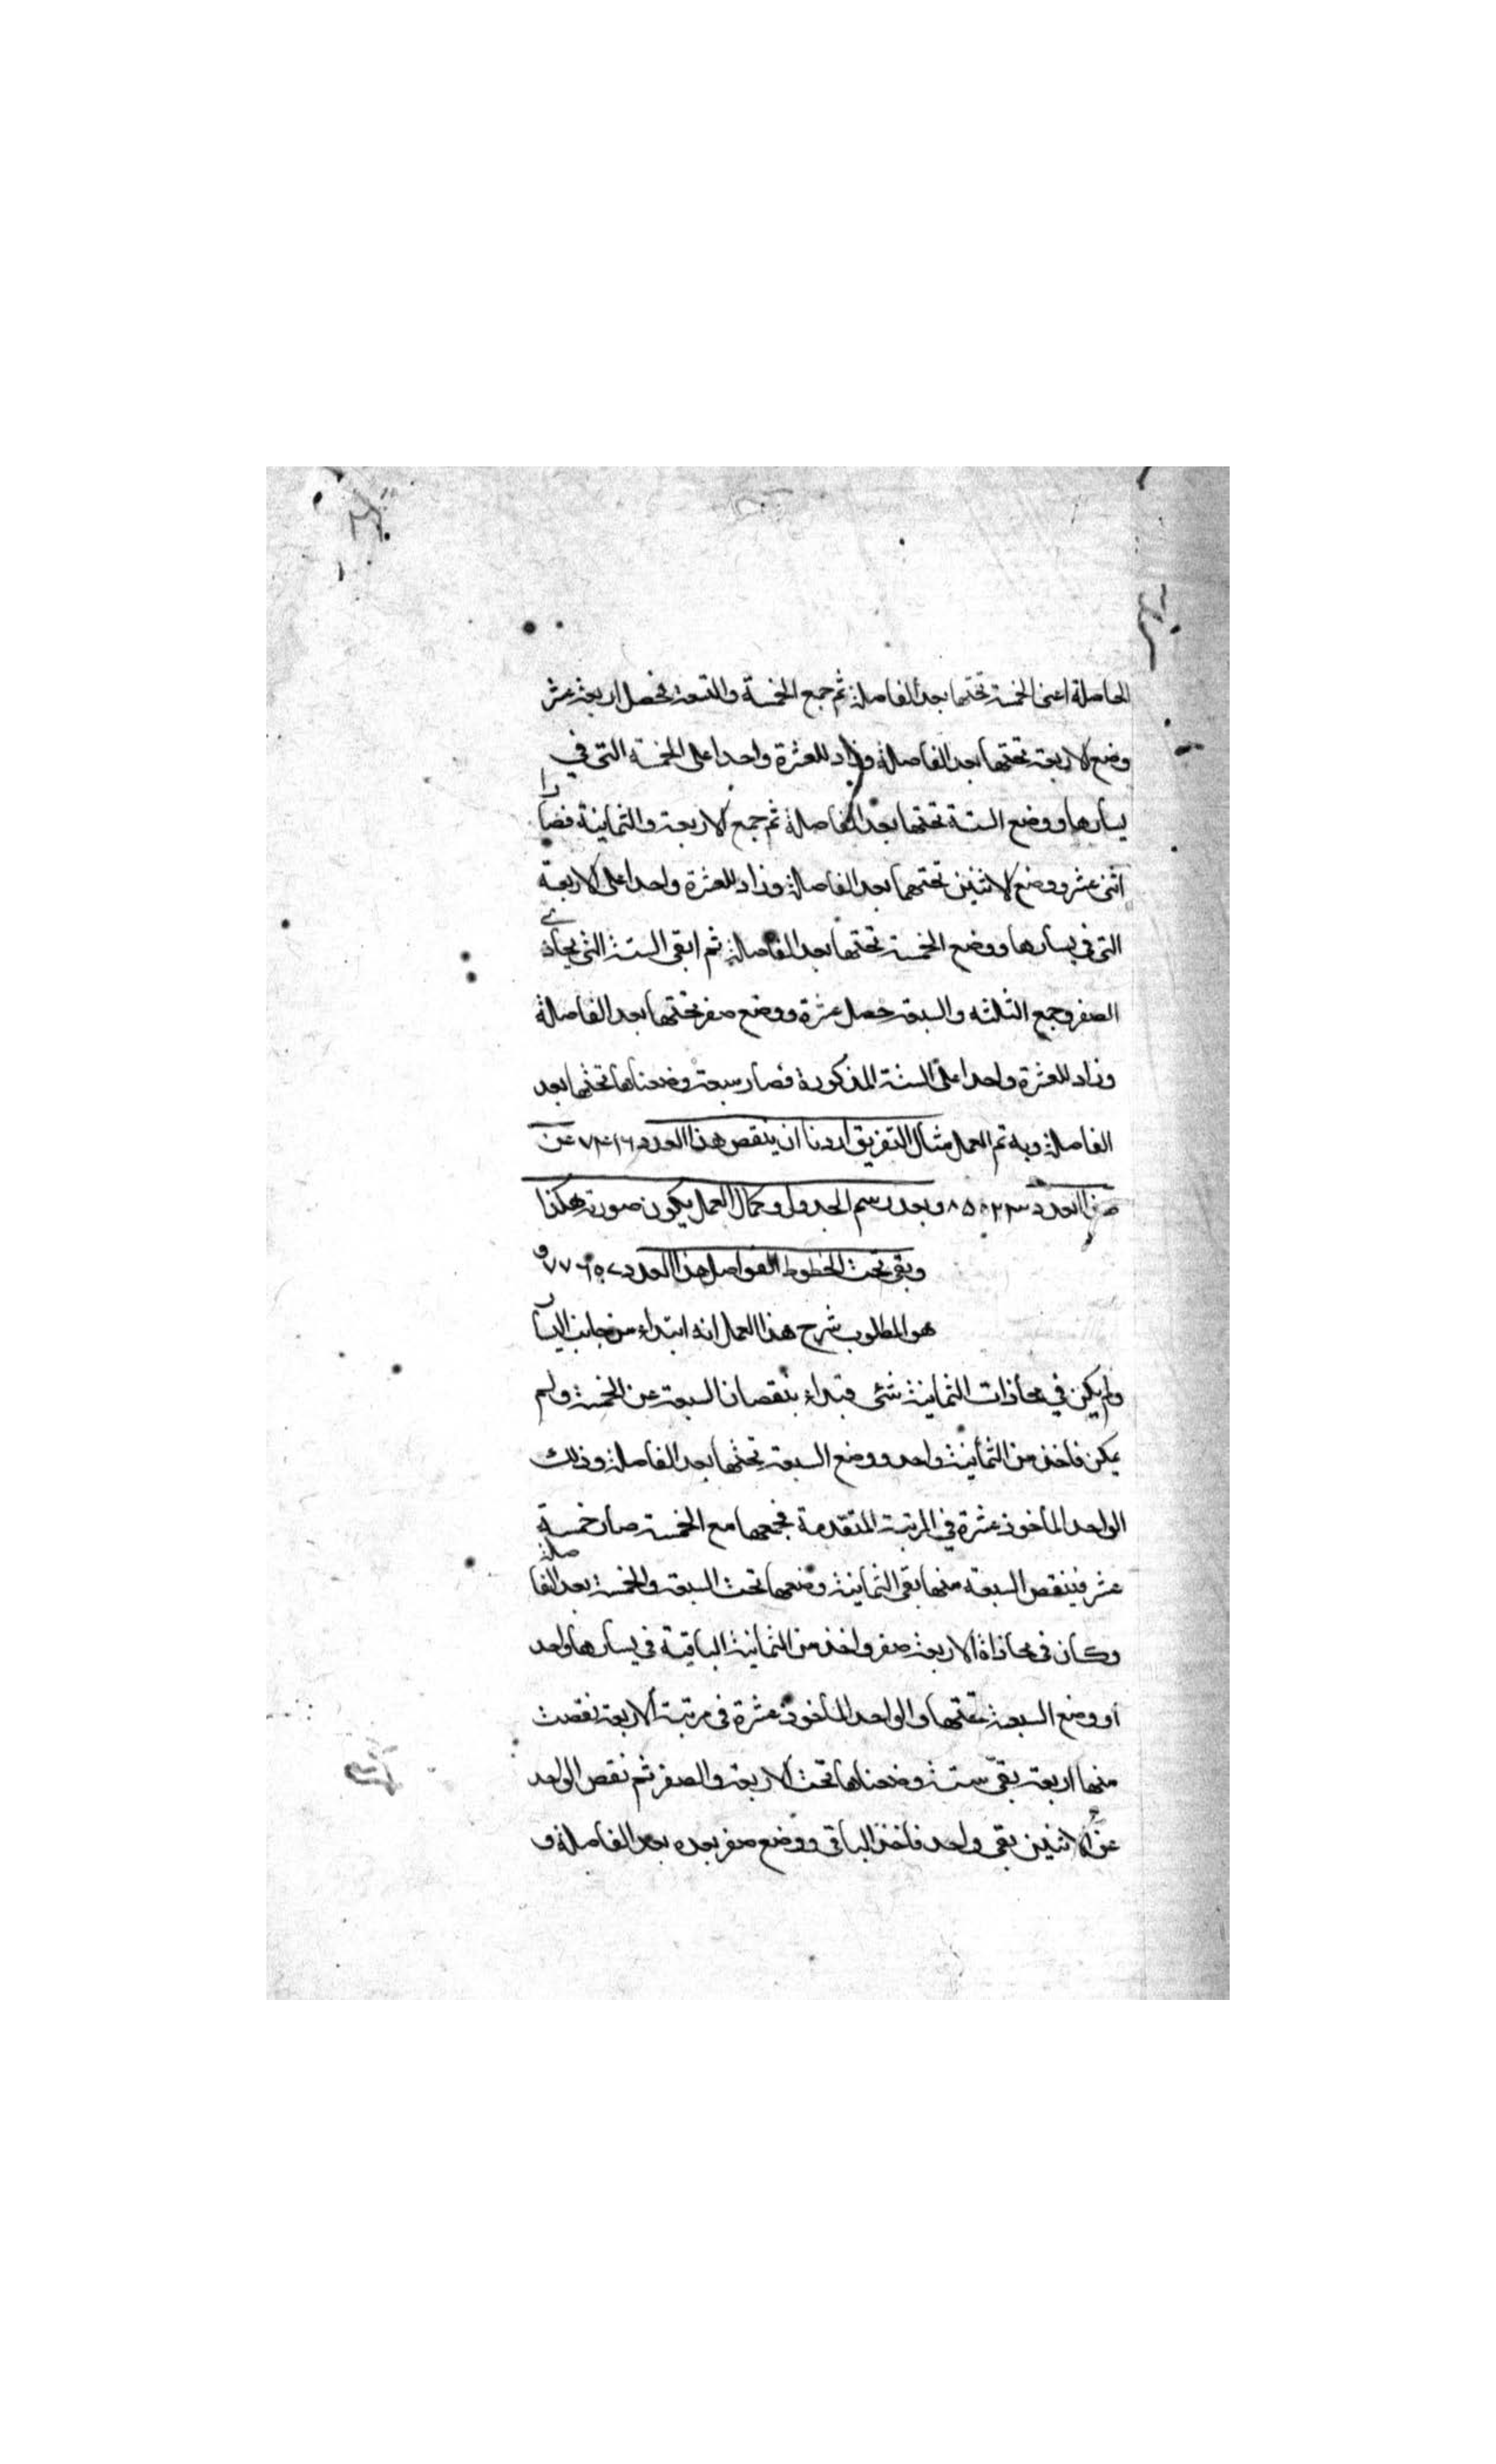 الحاصلة اعنى الخمسة تحتها بعد الفاصلة ثم جمع الخمسة والتسعة فحصل اربعة عشر
وضع الاربعة تحتها بعد الفاصلة وزاد للعشرة واحدا على الخمسة التى في
يسارها ووضع الستة تحتها بعد الفاصلة ثم جمع الاربعة والثمانية فصارا
اثنى عشر ووضع الاثنين تحتهما بعد الفاصلة وزاد للعشرة واحدا على الاربعة
التى في يسارها ووضع الخمسة تحتها بعد الفاصلة ثم ابقى الستة التى يحاذي
الصفر وجمع الثلثه والسبعة حصل عشرة ووضع صفر تحتها بعد الفاصلة
وزاد للعشرة واحدا على الستة المذكورة فصار سبعة وضعناها تحتها بعد
الفاصلة وبه تم العمل مثال التفريق اردنا ان ينقص هذا العدد ٧٤١٦ عن
هذا العدد ٨٥٠٢٣ وبعد رسم الجدول وكمال العمل يكون صورته هكذا
وبقى تحت الخطوط الفواصل هذا العدد ٧٧٦٠٧ و
هو المطلوب شرح هذا العمل انه ابتداء من جانب اليسار
ولم يكن في محاذات الثمانية شئ فبتداء بنقصان السبعة عن الخمسة ولم
يمكن فاخذ من الثمانية واحد ووضع السبعة تحتها بعد الفاصلة وذلك
الواحد المأخوذ عشرة في المرتبة المتقدمة فجمعها مع الخمسة صار خمسة
عشر فينقص السبعة منها بقى الثمانية وضعها تحت السبعة والخمسة بعد الفاصلة
وكان في محاذاة الاربعة صفر واخذ من الثمانية الباقية في يسارها واحد
او وضع السبعة تحتها والواحد المأخوذ عشرة في مرتبة الاربعة نقصت
منها اربعة بقى ستة وضعناها تحت الاربعة والصفر ثم نقص الواحد
عن الاثنين بقى واحد فاخذ الباقى ووضع صفر بعده بعد الفاصلة و